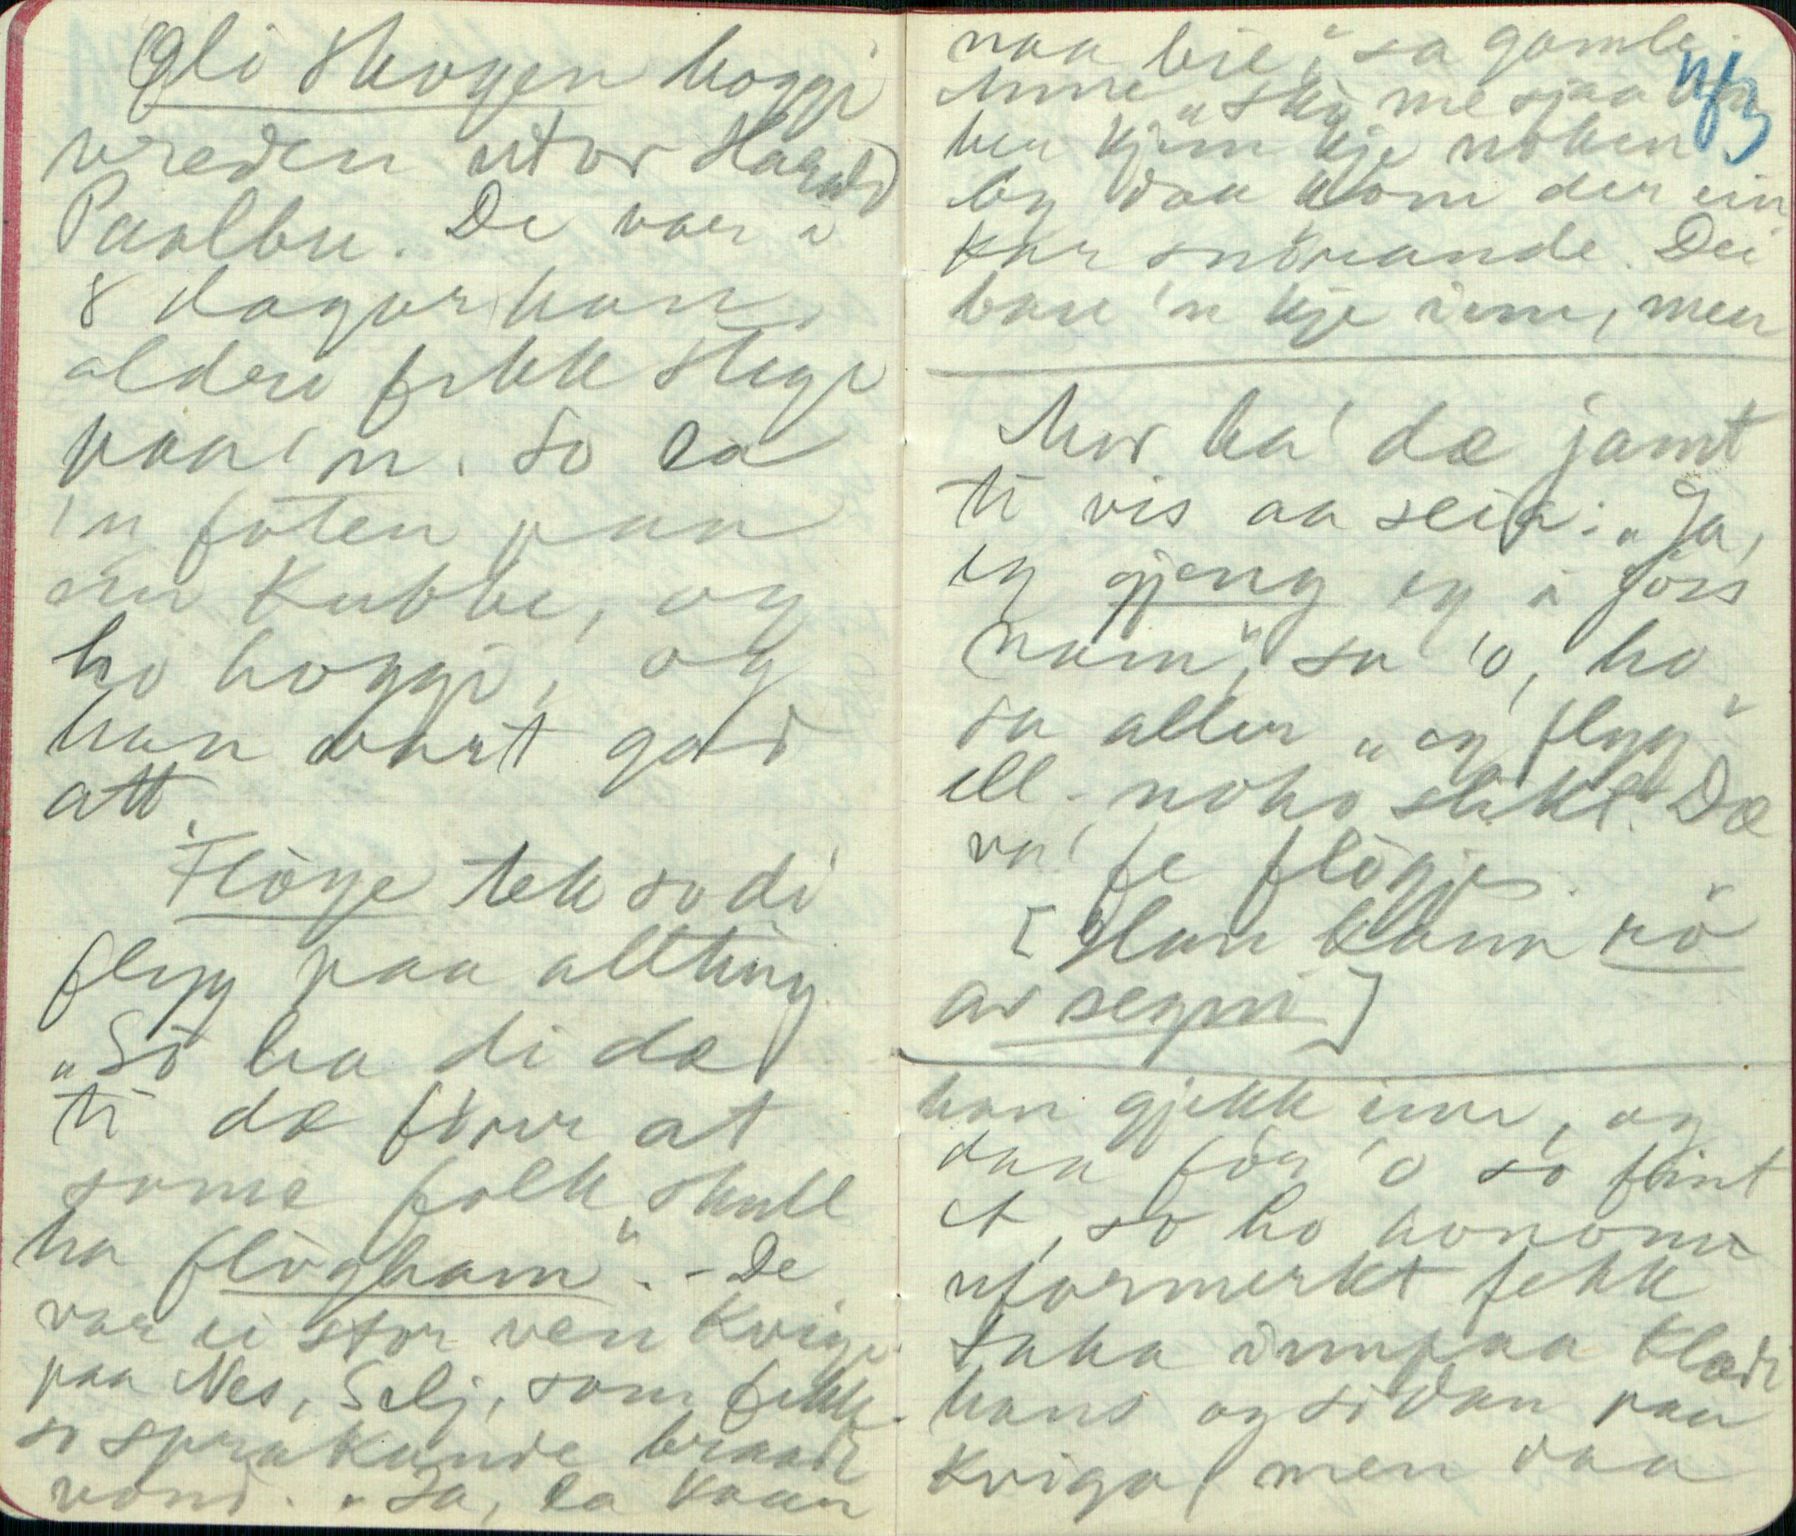 Oli Skogen hoggi
vreden utor Harald
Paalbu. De var i
8 dagar han
aldri fekk stige
paa 'n. So la
'n foten paa
ein kubbe, og
ho hoggi, og
han vart god
att.
Flöge tek so di
flyg paa allting
„So ha di dæ
ti dæ förr at
some folk skull
ha flögham". - De
var ei stor ven kvige
paa Nes, Selj, som fekk
so sprakande braadt
vond. „Ja, la kaan
naa bie", sa gamle
Anne „sku me sjaa um
her kjem kje noken
Og daa kom der ein
kar snöreande. Dei
bau 'n kje inn, men
Mor ha' dæ jamt
ti vis aa seia: „Ja,
eg gjeng eg i Jöss
namn", sa 'o, ho
sa aller „eg flyg"
ell. noko slikt. Dæ
va' fe flögjes.
[„Han kann rö"
av segni]
han gjekk inn, og
daa för 'o so feint
et, so ho aonom
uformerkt fekk
taka innpaa klædi
hans og sidan paa
kviga, men daa